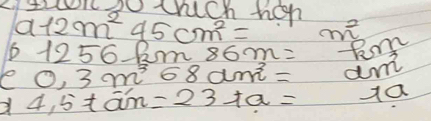 số thích hợp
a 12m² 45cm² = m²
b 1256 km 86m = km
c 0,3 m² 68dm² = dm²
d 4,5 tấn = 23 tạ = tạ